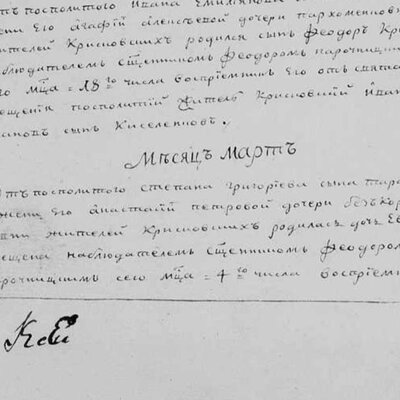 тъ посполитого Ивана Емиліянова
ени Его агафіи алексѣевой дочери пархоменково
ителей Крисновскихъ родился сынъ Феодоръ Кр
аблюдателемъ Сщенникомъ Феодоромъ нарочицким
го мца = 18 го числа воспріемникъ Его отъ святаго
ещенія посполитій житель Крисновскій Иван
ановъ сынъ Киселенковъ.
Мѣсяцъ Мартъ
Отъ посполитого степана григоріева сына Тара
жени Его анастасіи петровой дочери безъ
жителей Крисновскихъ родилась дочь Ев
ещена наблюдателемъ Сщенникомъ Феодором
арочицкимъ сего мца = 4 го числа воспріем